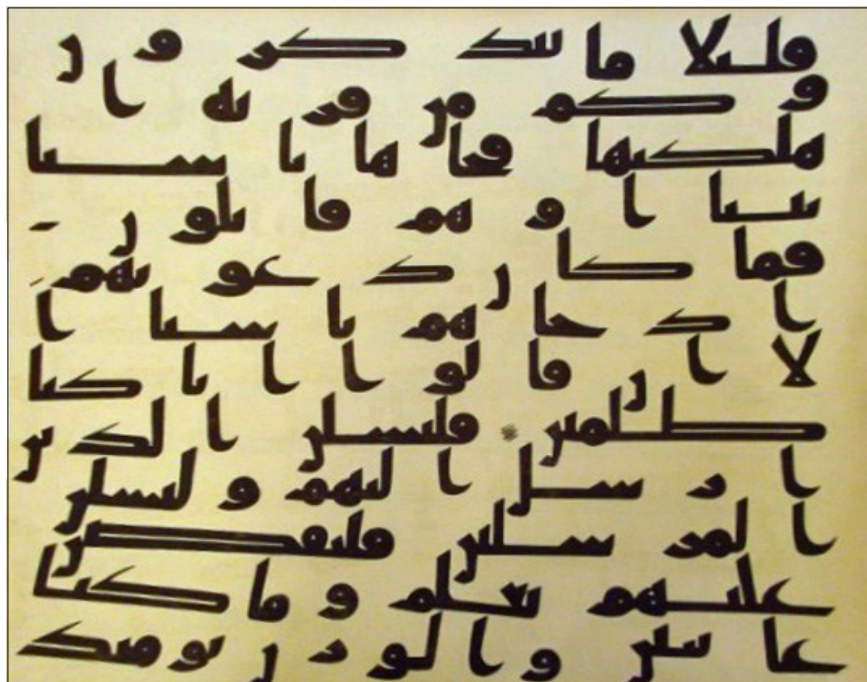 قليلا ما تذكرون
وكم من قرية ا
هلكنها فجاها باسنا
بيتا او هم قايلون
فما كان دعويهم
اذ جاهم باسنا ا
لا ان قالوا انا كنا
ظلمين فلنسلن الذين
ارسل اليهم ولنسلن
المرسلين فلنقصن
عليهم بعلم وما كنا
غايبين والوزن يوميذ